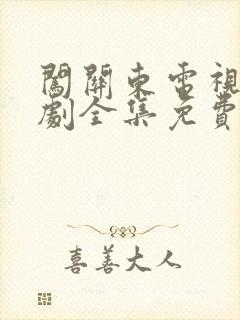 闖關東電視
劇全集免費
喜善大人